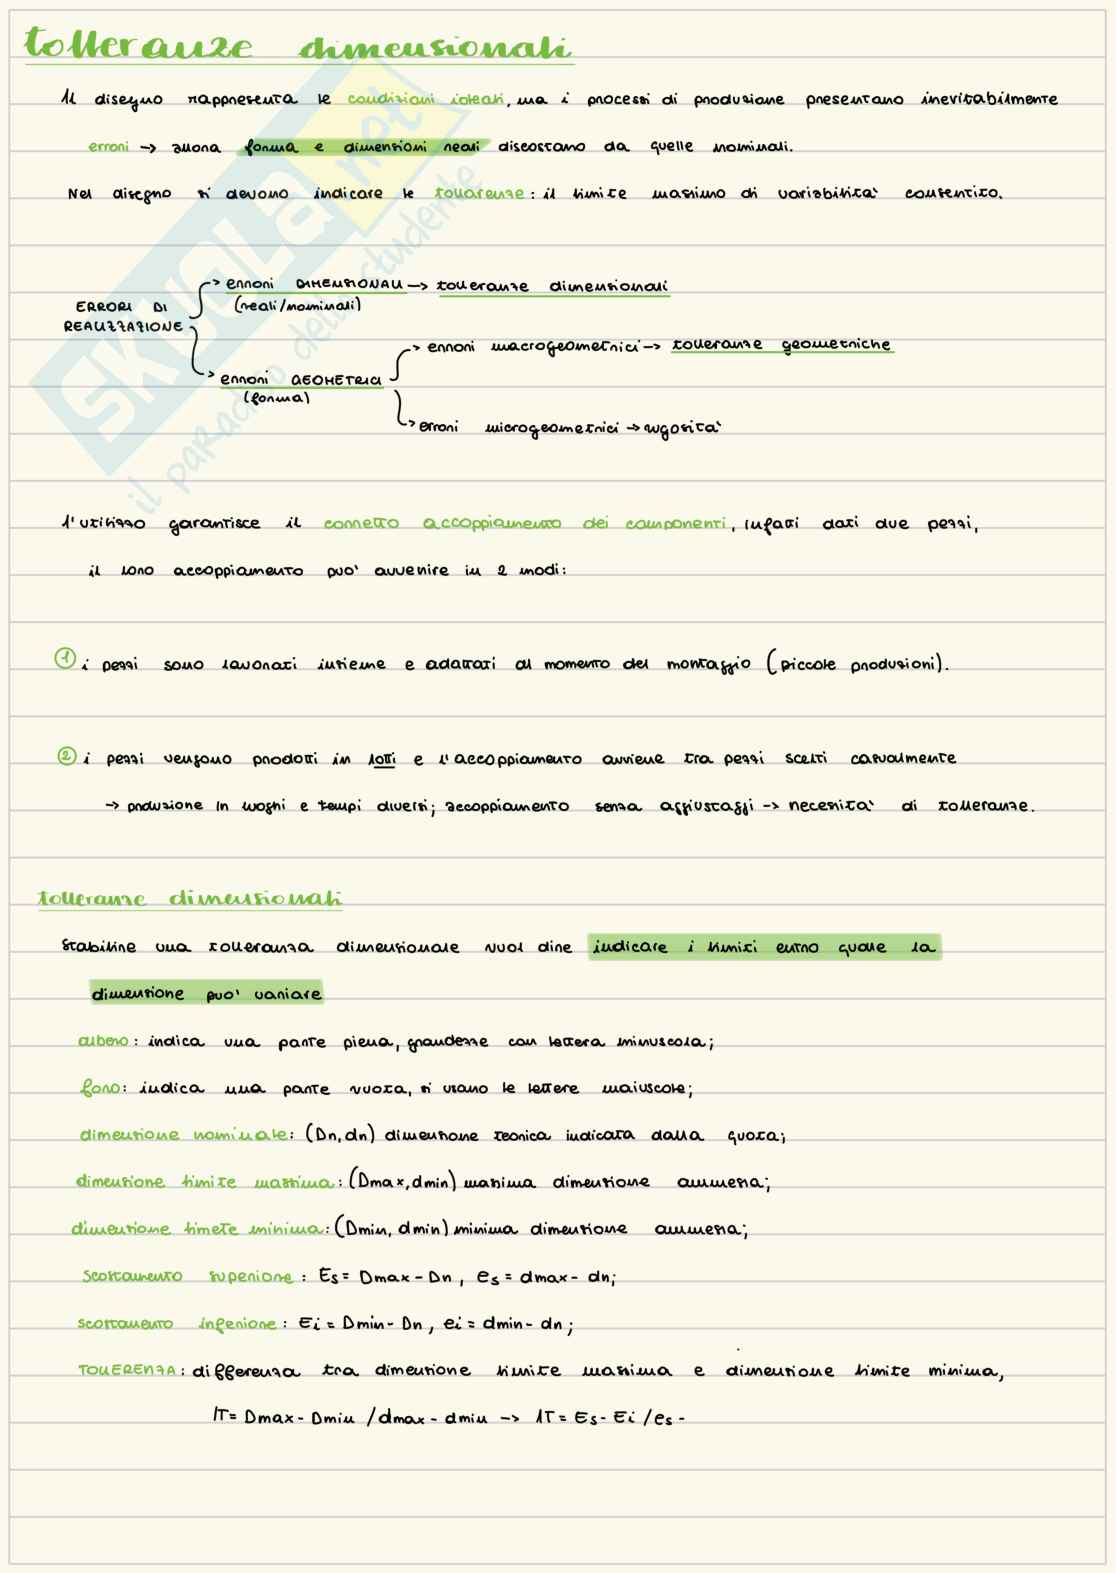 tolleranze dimensionali
Il disegno rappresenta le condizioni ideali, ma i processi di produzione presentano inevitabilmente
errori → allora forma e dimensioni reali discostano da quelle nominali.
Nel disegno si devono indicare le tollerenze: il limite massimo di variabilita' consentito.
ERRORI DI REALIZZAZIONE
errori DIMENSIONALI → tolleranze dimensionali
(reali/nominali)
errori macrogeometrici → tolleranze geometriche
errori GEOMETRICI
(forma)
errori microgeometrici → rugosita'
l'utilizzo garantisce il corretto accoppiamento dei componenti, infatti dati due pezzi,
il loro accoppiamento puo' avvenire in 2 modi:
1 i pezzi sono lavorati insieme e adattati al momento del montaggio (piccole produzioni).
2 i pezzi vengono prodotti in lotti e l'accoppiamento avviene tra pezzi scelti casualmente
→ produzione in luoghi e tempi diversi; accoppiamento senza aggiustaggi → necessita' di tolleranze.
tolleranze dimensionali
Stabilire una tolleranza dimensionale vuol dire indicare i limiti entro quale la
dimensione puo' variare
albero: indica una parte piena, grandezze con lettera minuscola;
foro: indica una parte vuota, si usano le lettere maiuscole;
dimensione nominale: (Dn, dn) dimensione teorica indicata dalla quota;
dimensione limite massima: (Dmax, dmin) massima dimensione ammessa;
dimensione limete minima: (Dmin, dmin) minima dimensione ammessa;
scostamento superiore: Es = Dmax - Dn, es = dmax - dn;
scostamento inferiore: Ei = Dmin - Dn, ei = dmin - dn;
TOLLERENZA: differenza tra dimensione limite massima e dimensione limite minima,
IT = Dmax - Dmin / dmax - dmin → IT = Es - Ei / es -
SKUOLA.net
il paradiso dello studente